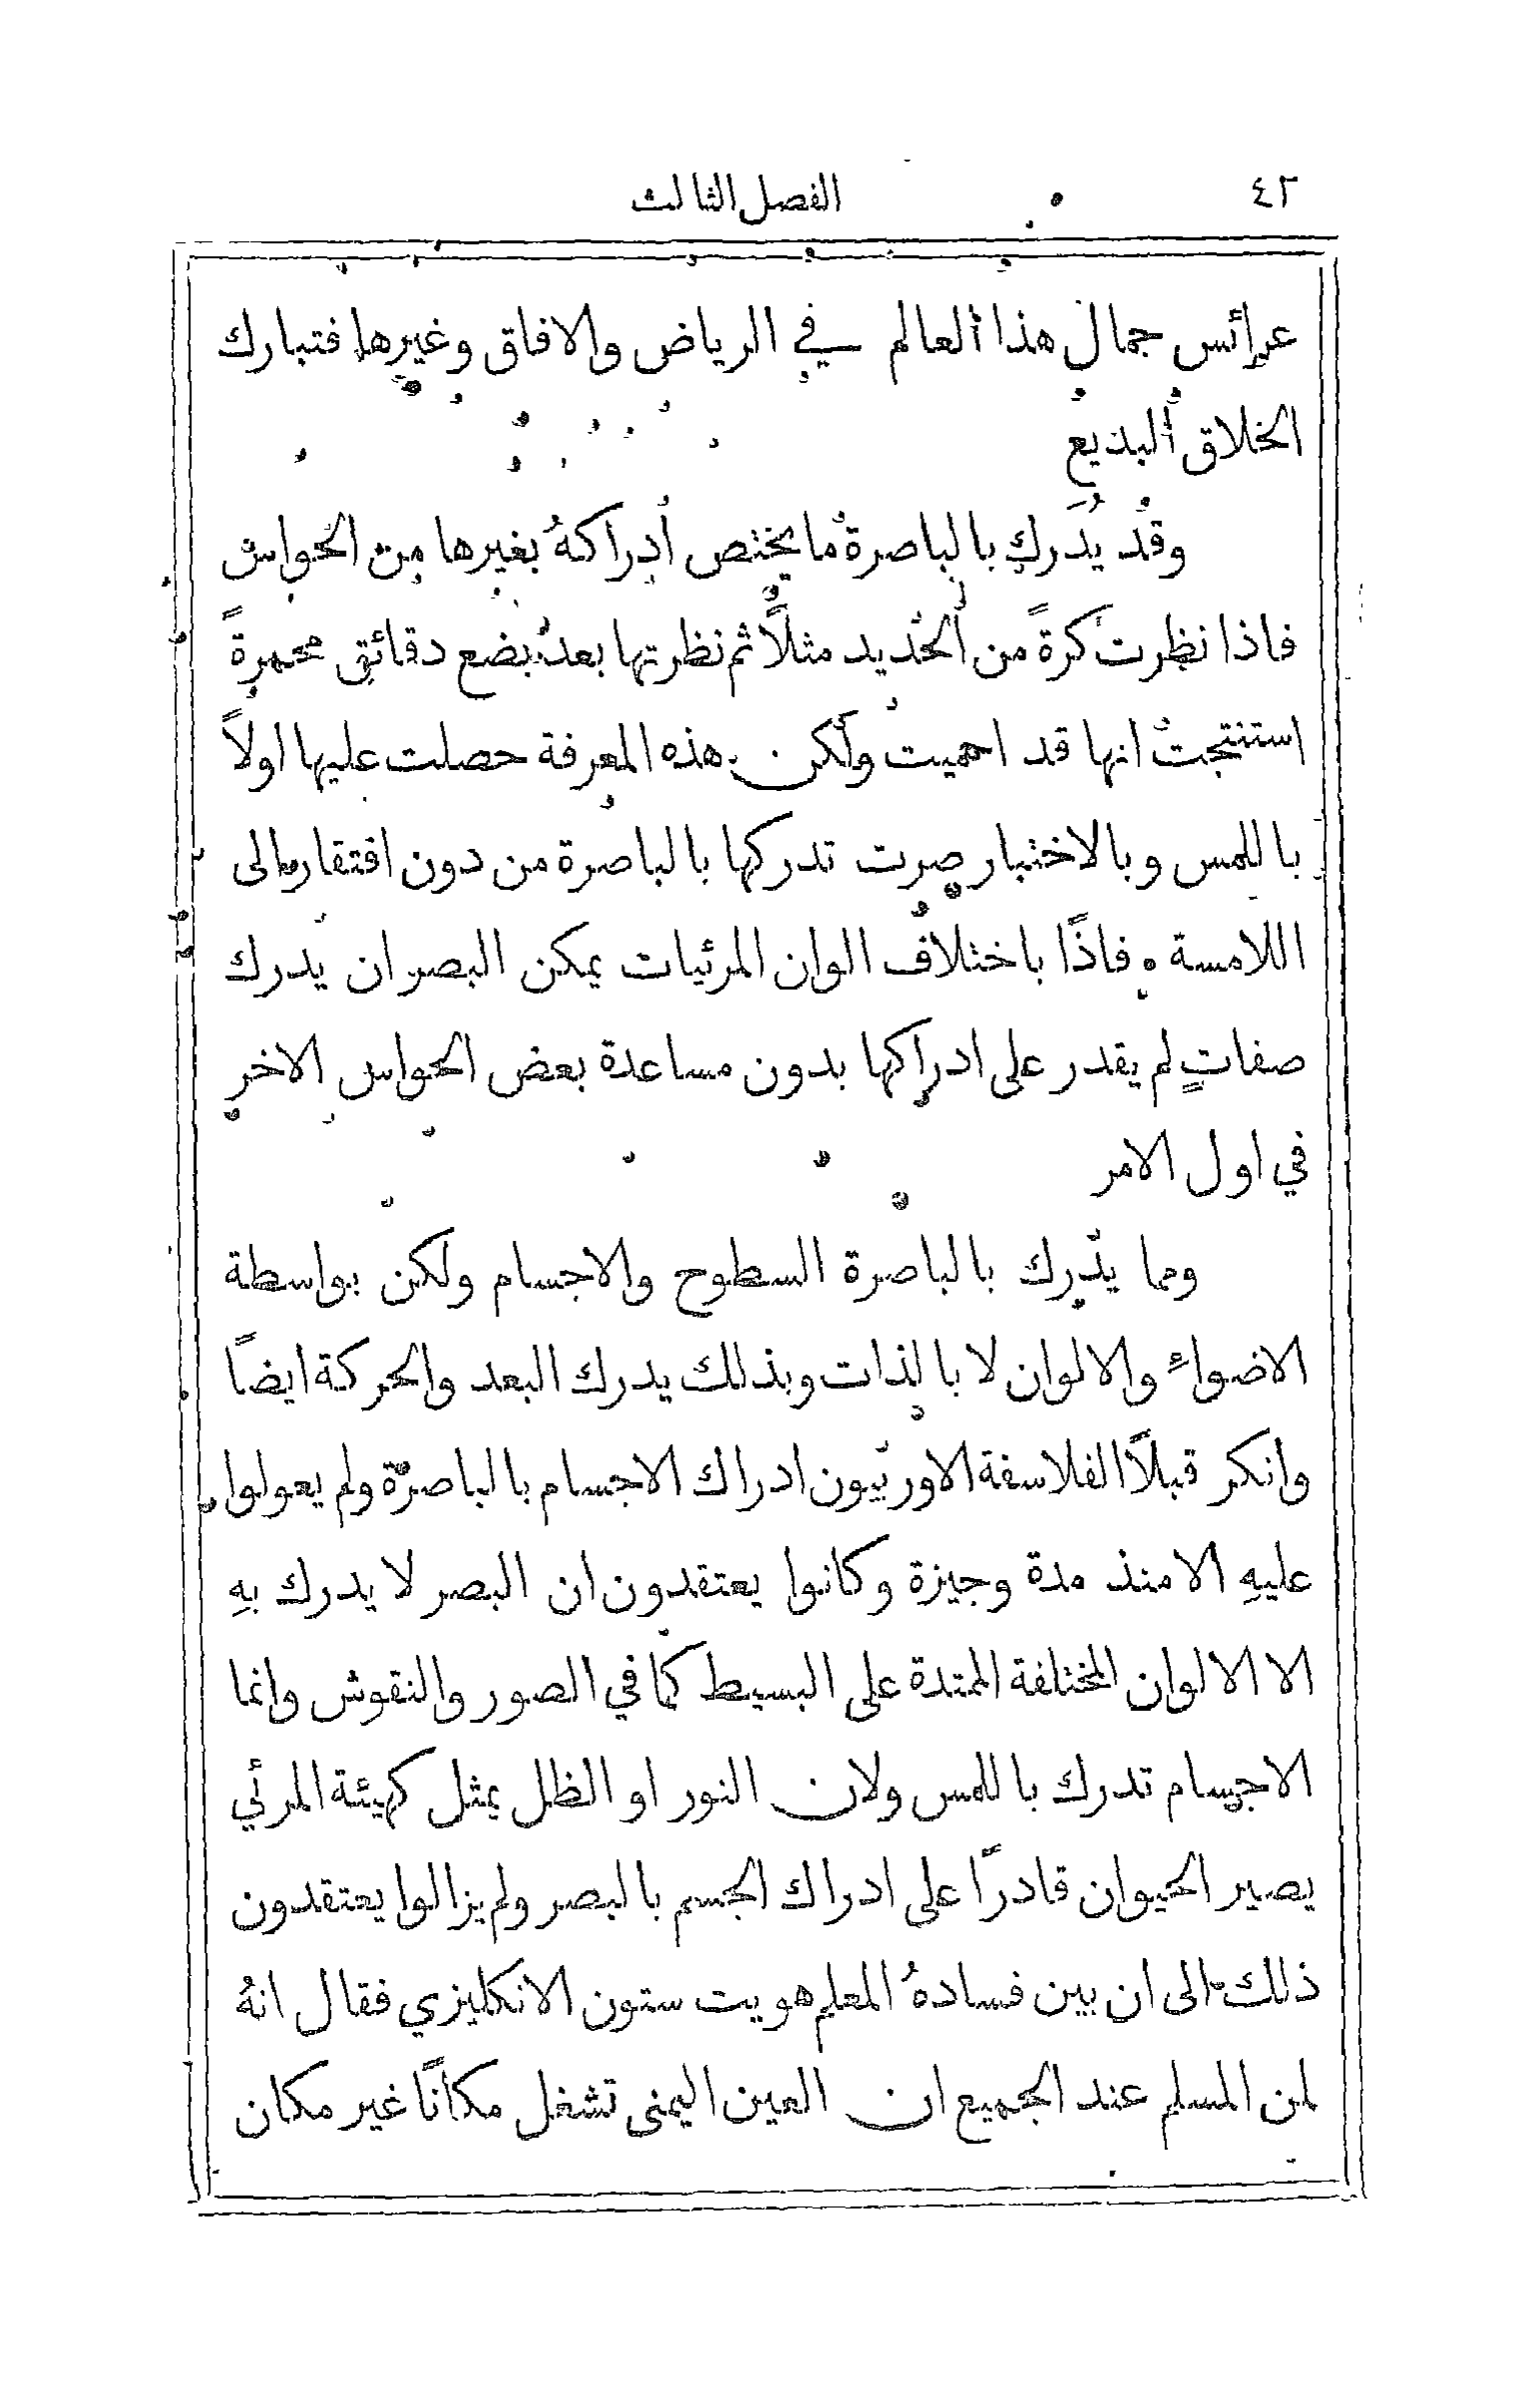 ٤٢ الفصل الثالث
عرائس جمال هذا العالم في الرياض والافاق وغيرها فتبارك
الخلاق البديع
وقد يُدرك بالباصرة ما يختص ادراكهُ بغيرها من الحواس
فاذا نظرت كرةً من الحديد مثلاً ثم نظرتها بعد بضع دقائق محمرةً
استنتجت انها قد احميت ولكن هذه المعرفة حصلت عليها اولاً
باللمس وبالاختبار صرت تدركها بالباصرة من دون افتقار الى
اللامسة . فاذًا باختلاف الوان المرئيات يمكن البصر ان يدرك
صفاتٍ لم يقدر على ادراكها بدون مساعدة بعض الحواس الاخر
في اول الامر
ومما يدرك بالباصرة السطوح والاجسام ولكن بواسطة
الاضواء والالوان لا بالذات وبذلك يدرك البعد والحركة ايضاً
وانكر قبلاً الفلاسفة الاوربيون ادراك الاجسام بالباصرة ولم يعولوا
عليهِ الا منذ مدة وجيزة وكانوا يعتقدون ان البصر لا يدرك بهِ
الا الالوان المختلفة الممتدة على البسيط كما في الصور والنقوش وانما
الاجسام تدرك باللمس ولان النور او الظل يمثل كهيئة المرئي
يصير الحيوان قادرًا على ادراك الجسم بالبصر ولم يزالوا يعتقدون
ذلك الى ان بين فسادهُ المعلم هويت ستون الانكليزي فقال انهُ
لمن المسلم عند الجميع ان العين اليمنى تشغل مكانًا غير مكان